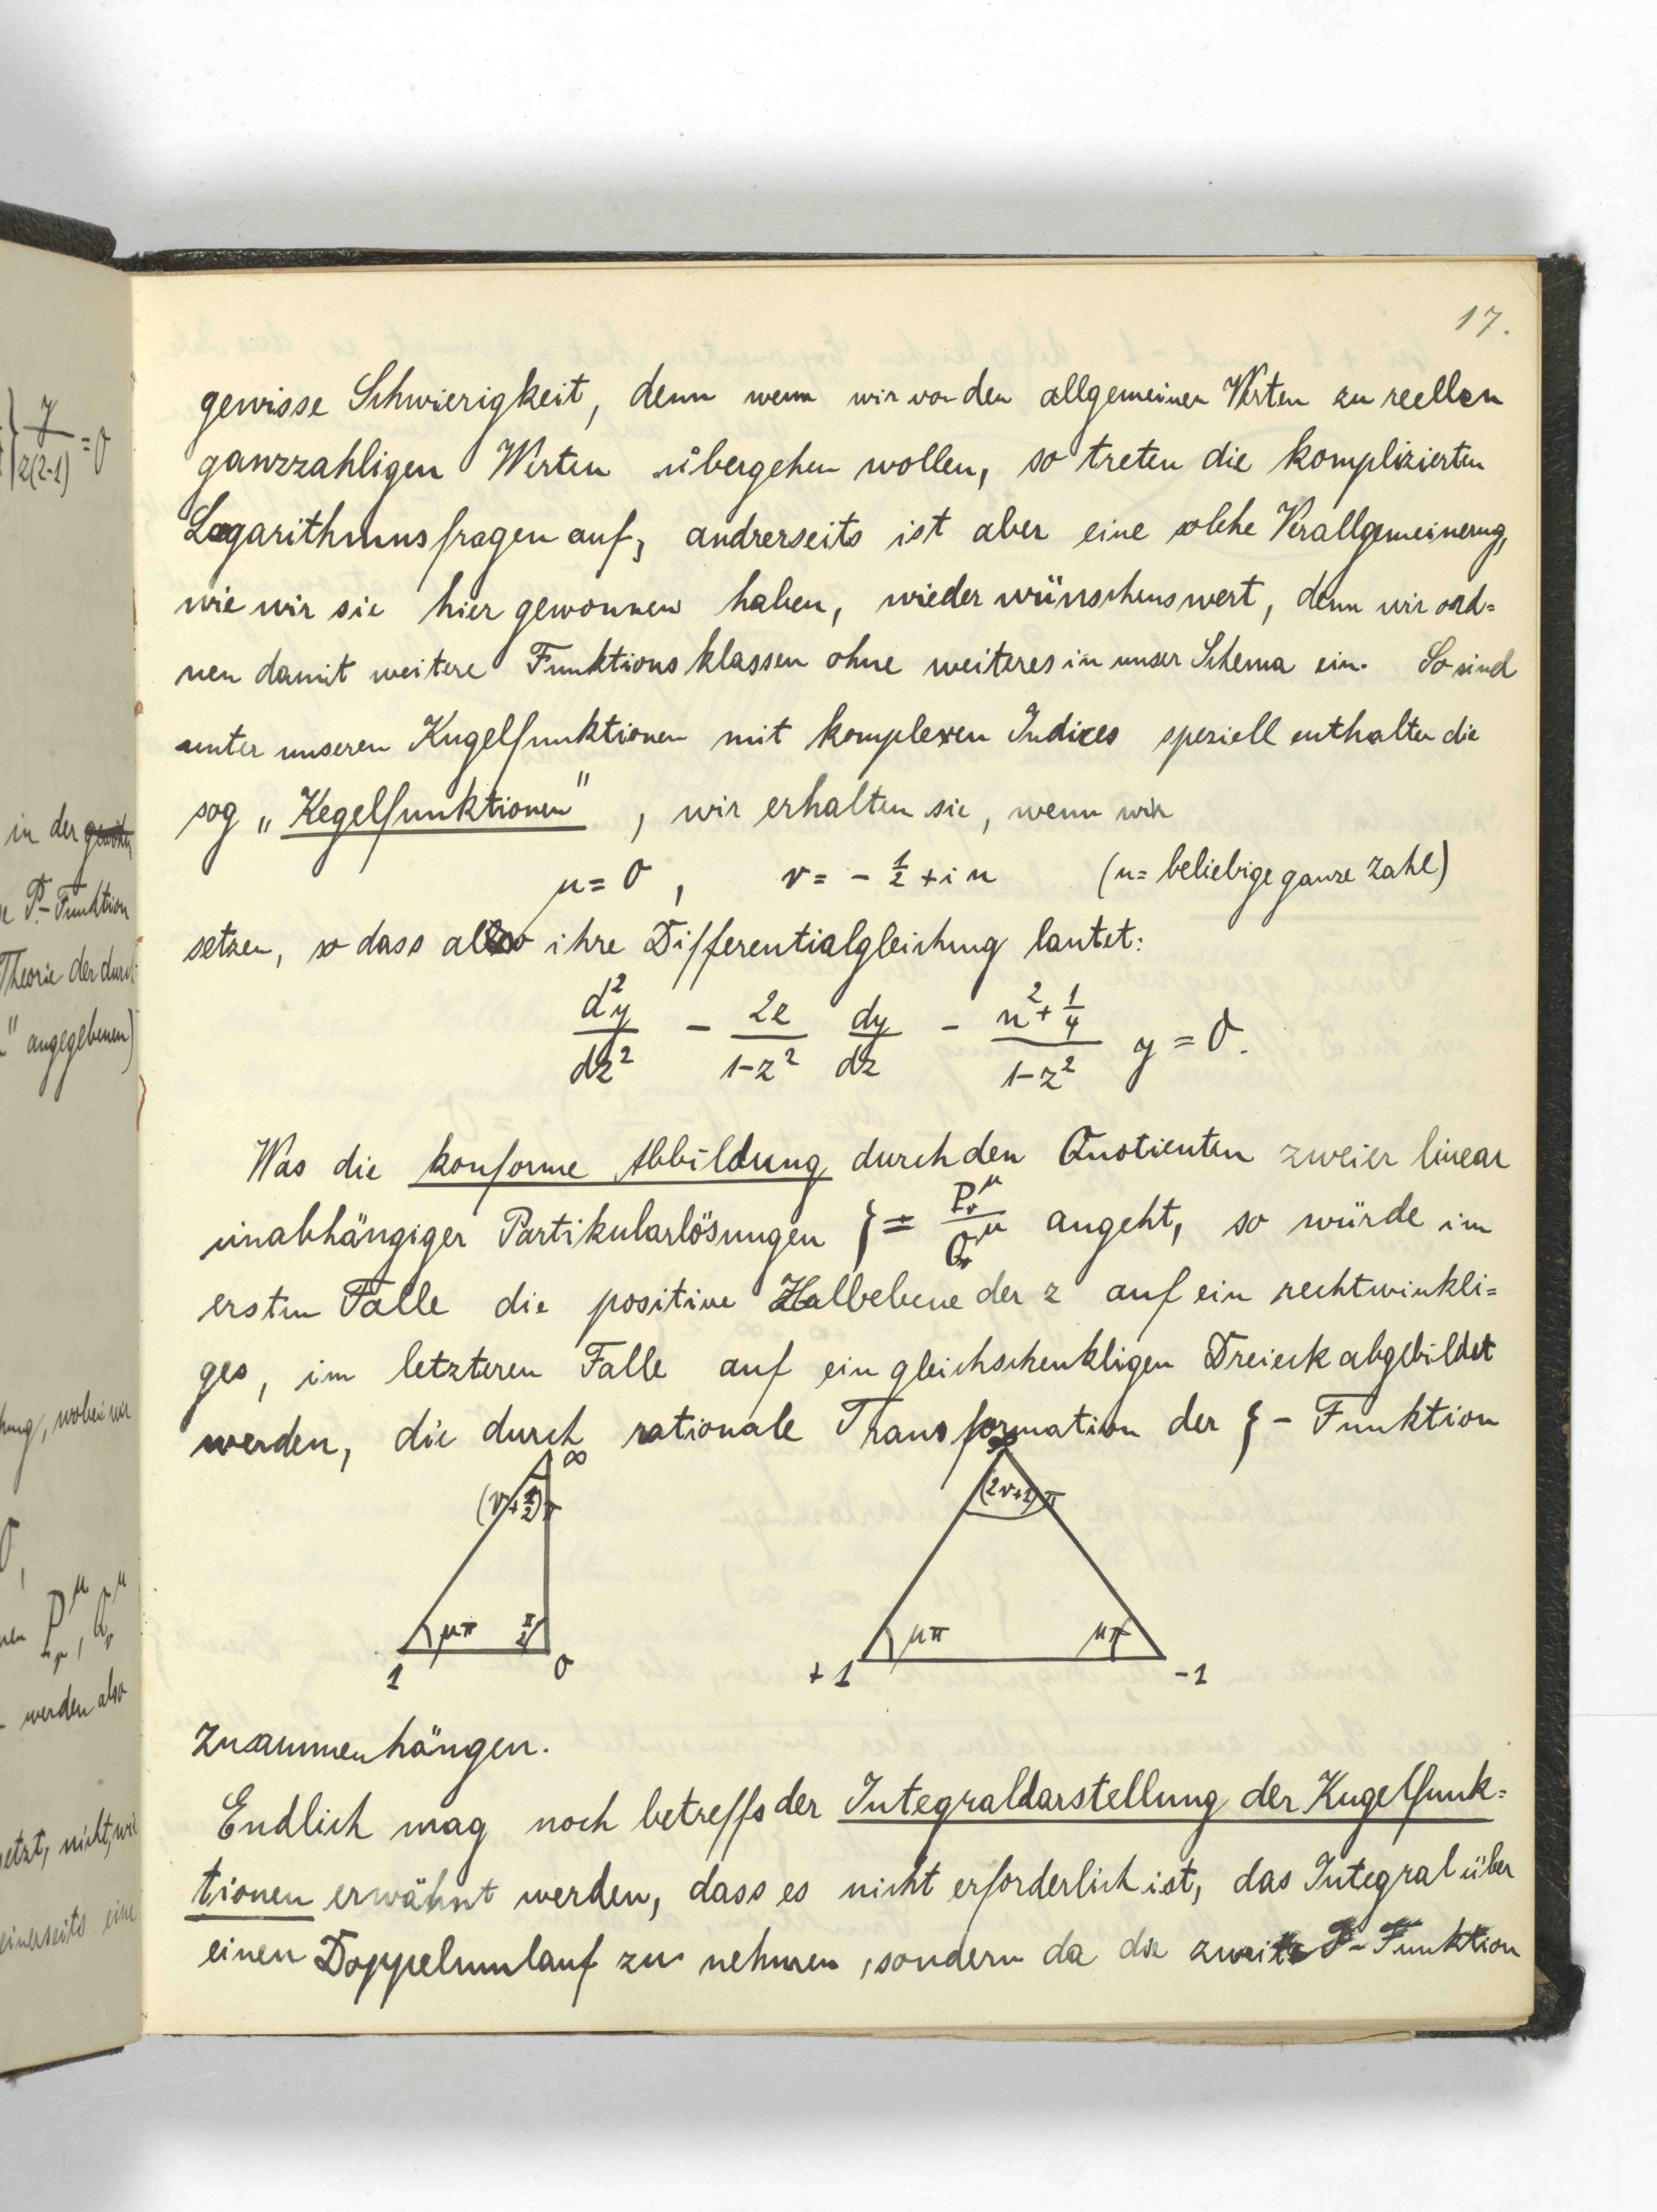 17.
gewisse Schwierigkeit, denn wenn wir von den allgemeinen Werten zu reellen
ganzzahligen Werten übergehen wollen, so treten die komplizierten
Logarithmusfragen auf, andrerseits ist aber eine solche Verallgemeinerug,
wie wir sie hier gewonnen haben, wieder wünschenswert, denn wir ord=
nen damit weitere Funktionsklassen ohne weiteres in unser Schema ein. So sind
unter unseren Kugelfunktionen mit komplexen Indices speziell enthalten die
sog „Kegelfunktionen", wir erhalten sie, wenn wir
μ = 0, ν = - 1/2 + i n (n = beliebige ganze Zahl)
setzen, so dass also ihre Differentialgleichung lautet:
d²y/dz² - 2z/(1-z²) dy/dz - (n² + 1/4)/(1-z²) y = 0.
Was die konforme Abbildung durch den Quotienten zweier linear
unabhängiger Partikularlösungen ζ = P_ν^μ / Q_ν^μ angeht, so würde im
ersten Falle die positive Halbebene der z auf ein rechtwinkli=
ges, im letzteren Falle auf ein gleichschenkligen Dreieck abgebildet
werden, die durch rationale Transformation der ζ - Funktion
∞
(ν+1/2)π (2ν+1)π
μπ π/2 μπ μπ
1 0 +1 -1
zusammenhängen.
Endlich mag noch betreffs der Integraldarstellung der Kugelfunk=
tionen erwähnt werden, dass es nicht erforderlich ist, das Integral über
einen Doppelumlauf zu nehmen, sondern da die zweite P-Funktion
y/z(z-1) = 0
in der
P-Funktion
Theorie der durch
" angegebenen)
wobei wir
0,
P_ν^μ, Q_ν^μ
werden also
setzt, nicht, wie
einerseits eine